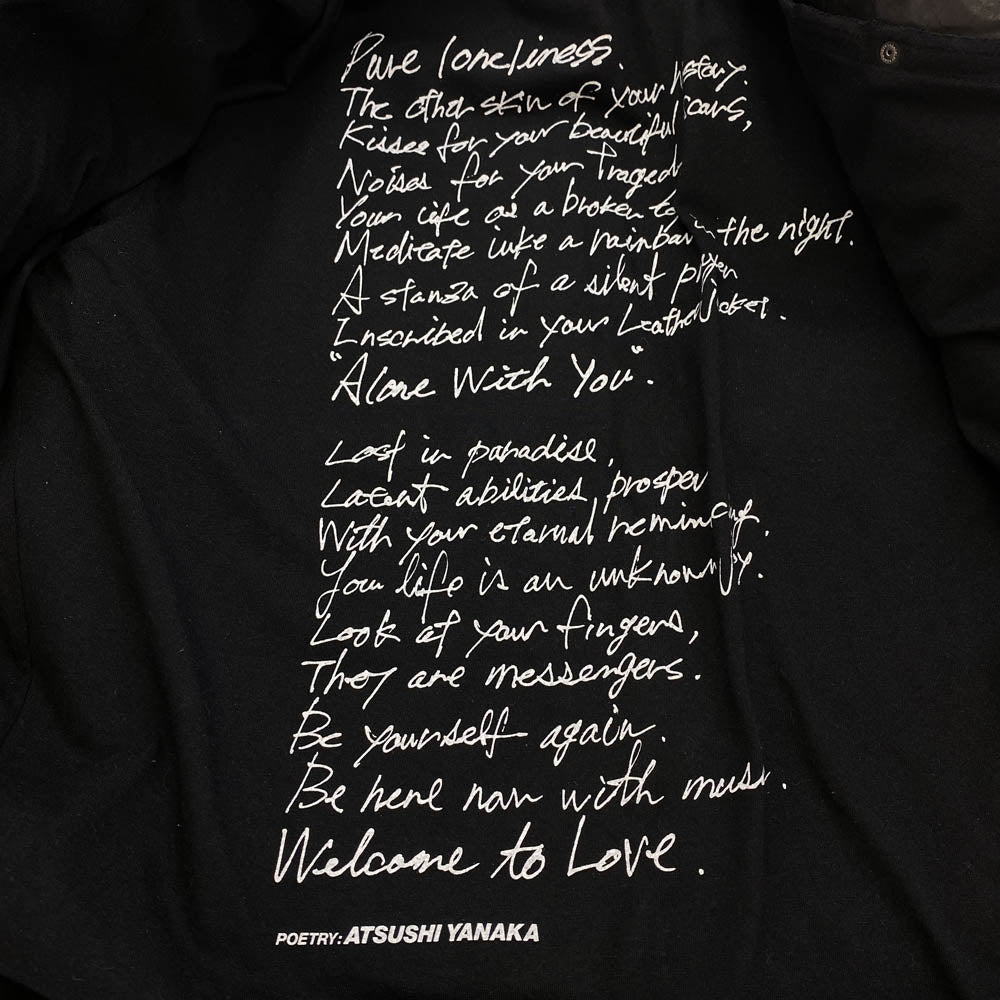 Pure loneliness.
The other skin of your history.
Kisses for your beautiful scars,
Noises for your Traged
Your life as a broken
Meditate like a rainbow in the night.
A stanza of a silent
Inscribed in your Leather Jacket.
"Alone With You".
Lost in paradise,
Latent abilities, prosper
With your eternal reminding.
Your life is an unknown
Look at your fingers,
They are messengers.
Be yourself again.
Be here now with music.
Welcome to Love.
POETRY: ATSUSHI YANAKA